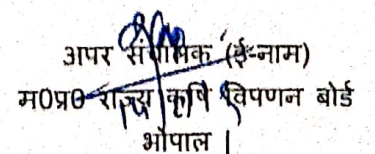 अपर संचालक (ई-नाम)
म0प्र0 राज्य कृषि विपणन बोर्ड
भोपाल |